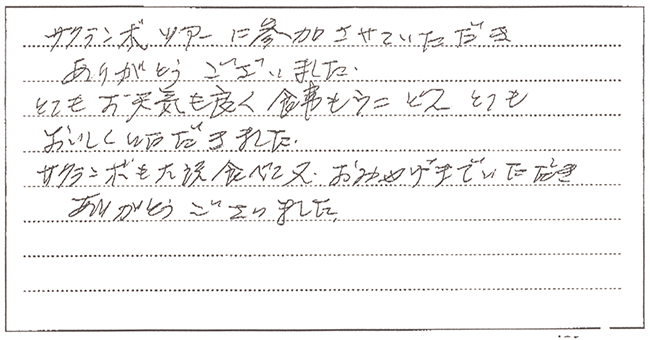 サクランボツアーに参加させていただき
ありがとうございました.
とてもお天気も良く食事もウニ ビスとても
おいしくいただきました.
サクランボも大沢食べて又.おみやげまでいただき
ありがとうございました.